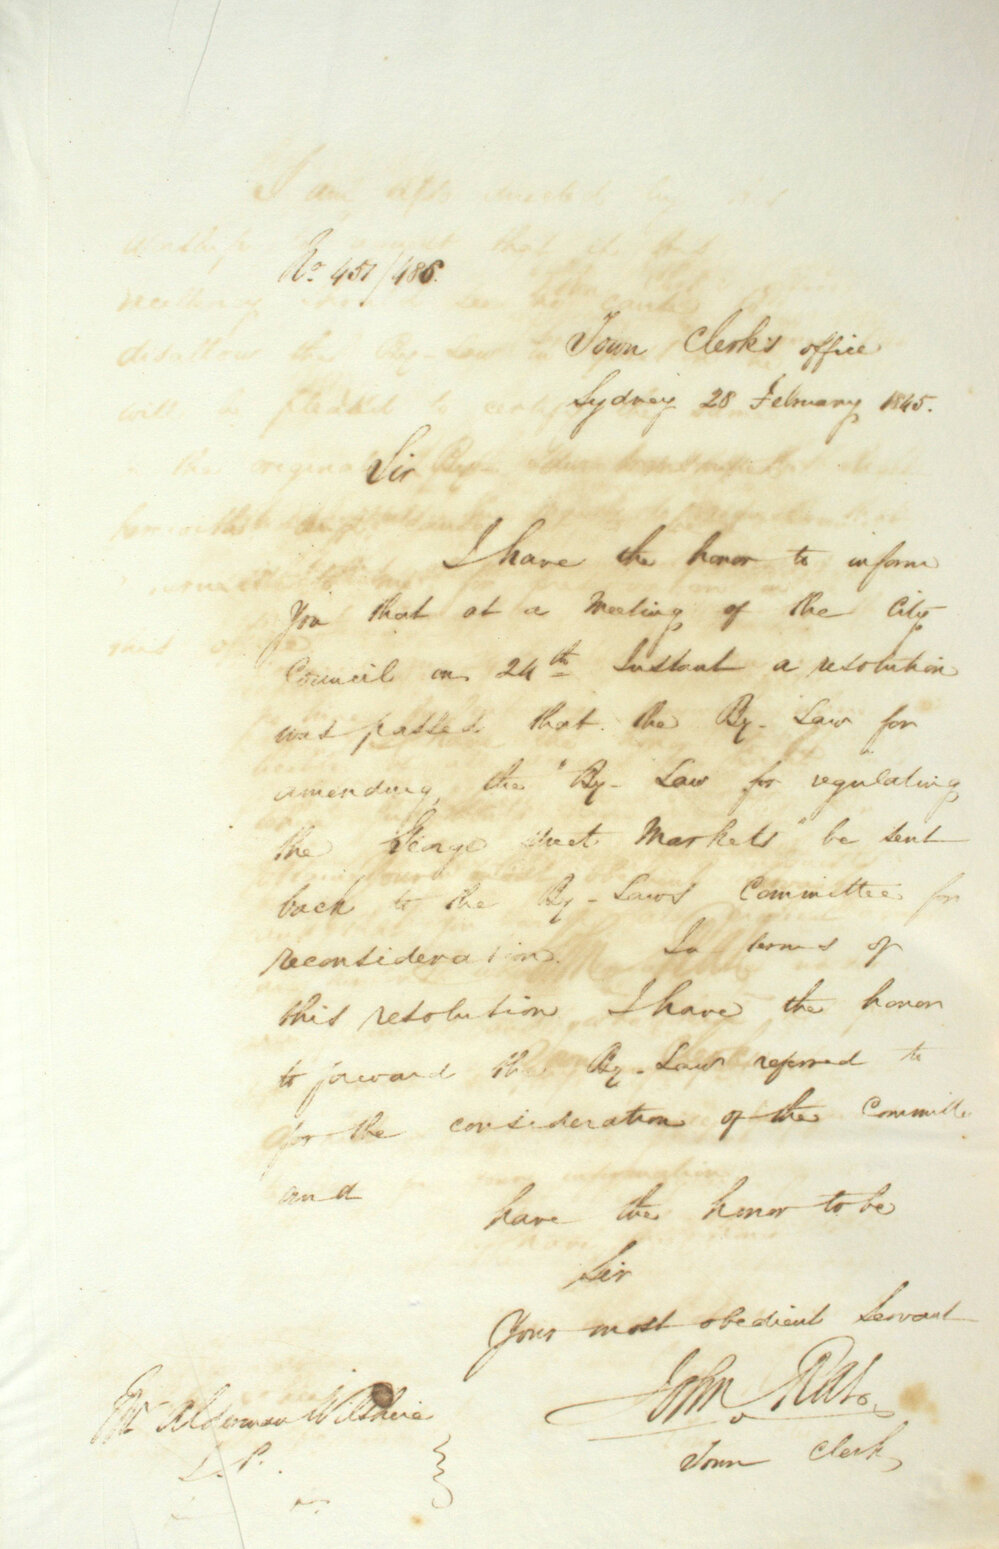 No 451/486.
Town Clerk's office
Sydney 28 February 1845.
Sir
I have the honor to inform
you that at a Meeting of the City
Council on 24th Instant a resolution
was passed that the By-Law for
amending the "By-Law for regulating
the George Street Markets" be sent
back to the By-Laws Committee for
reconsideration. In terms of
this resolution I have the honor
to forward the By-Law referred to
for the consideration of the Committee
and
have the honor to be
Sir
Your most obedient Servant
John
Town Clerk
Mr Alderman Wilshire